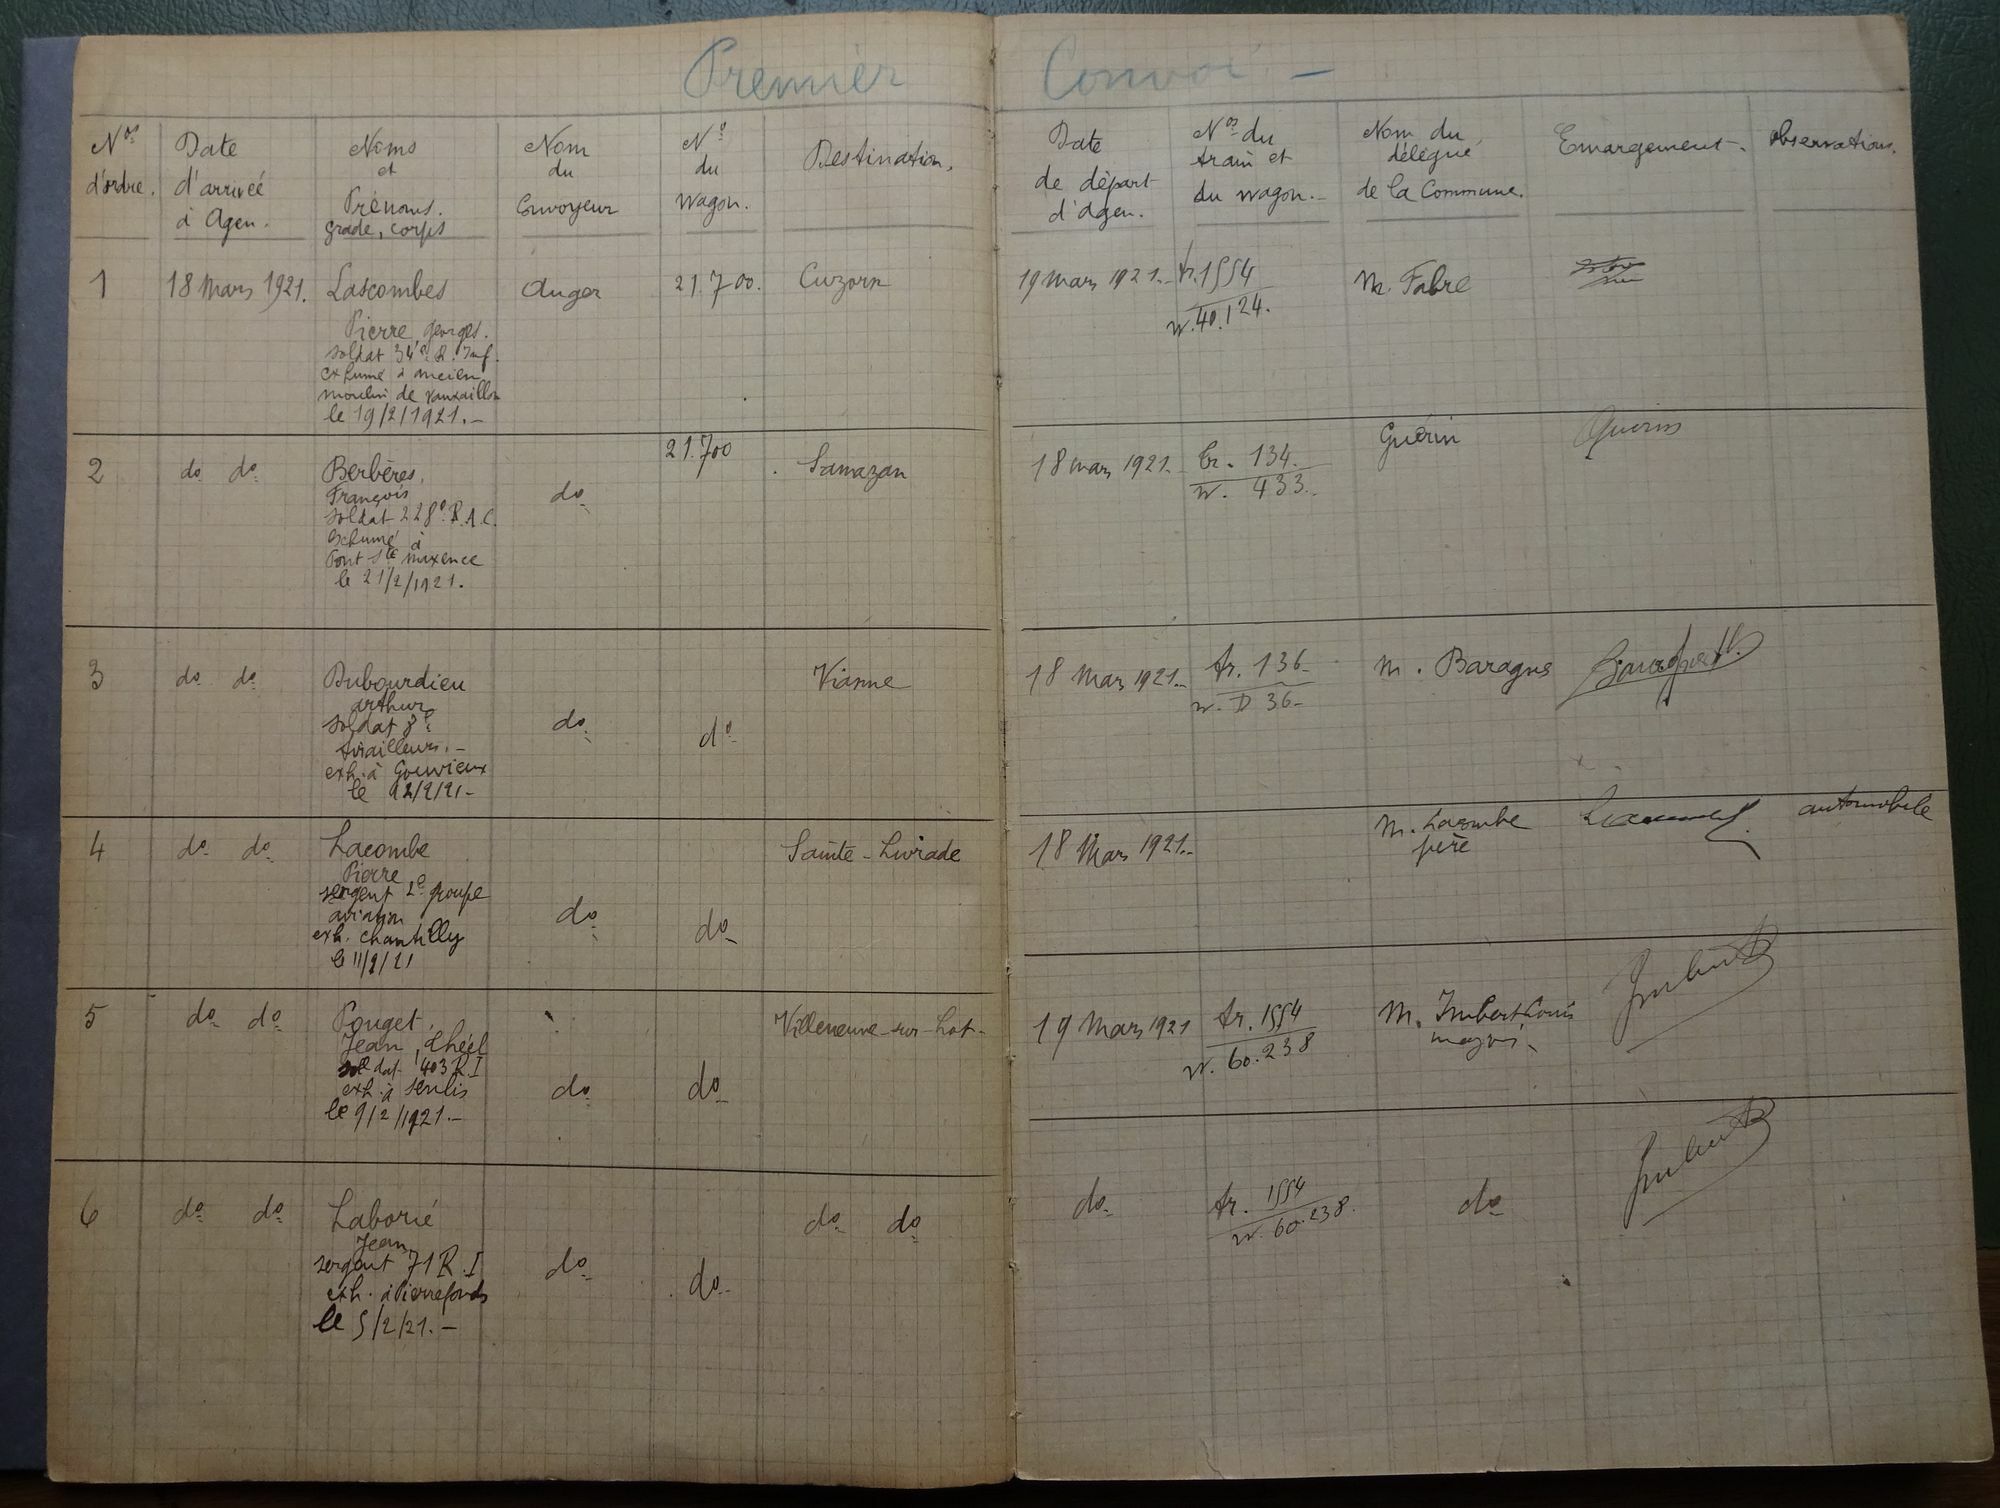 Premier Convoi. -
Nos d'ordre.
Date d'arrivée à Agen.
Noms et Prénoms. grade, corps
Nom du Convoyeur
No du Wagon.
Destination.
Date de départ d'Agen.
Nos du train et du wagon. -
Nom du délégué de la Commune.
Emargement.
Observations.
1 18 Mars 1921. Lascombes Auger 21.700. Cuzorn 19 Mars 1921. tr. 1554 M. Fabre
Pierre, georges. w. 40.124.
soldat 34e R. Inf.
exhumé à ancien
moulin de Vauxaillon
le 19/2/1921. -
2 do do Berbères, do 21.700 Samazan 18 mars 1921. tr. 134. Guérin Guérin
François w. 433.
soldat 228e R.A.C.
exhumé à
Pont Ste Maxence
le 21/2/1921.
3 do do Dubourdieu do do Vianne 18 Mars 1921. tr. 136 M. Baragns
arthur w. D 36
soldat 8e
tirailleurs. -
exh. à Gouvieux
le 12/2/21 -
4 do do Lacombe do do Sainte-Livrade 18 Mars 1921. M. Lacombe automobile
Pierre père
sergent 2e groupe
aviation
exh. Chantilly
le 11/2/21
5 do do Pouget, do do Villeneuve-sur-Lot 19 Mars 1921 tr. 1554 M. Imbert Louis Imbert
Jean, w. 60.238
soldat 403 R.I
exh. à Senlis
le 9/2/1921. -
6 do do Laborie do do do do do tr. 1554 do Imbert
Jean w. 60.238.
sergent 71 R.I
exh. à Pierrefonds
le 5/2/21. -